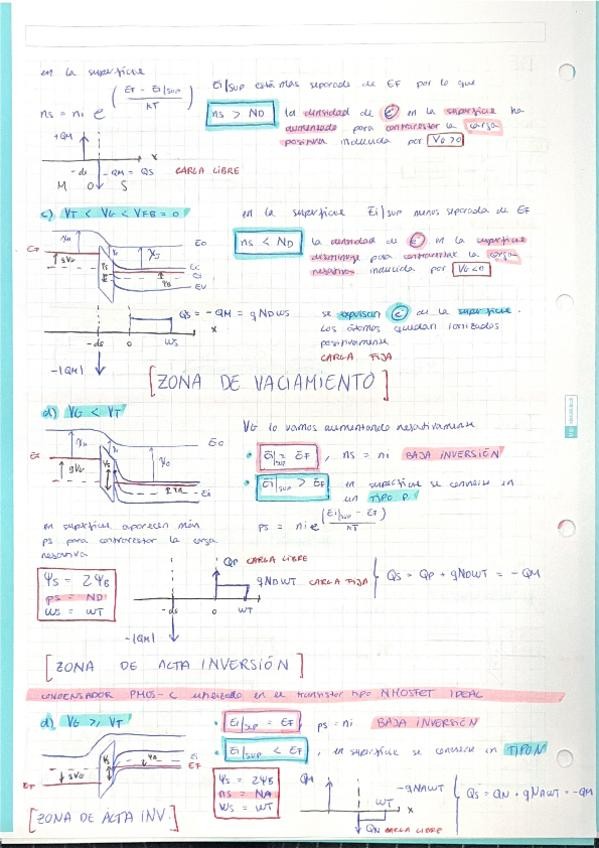 en la superficie
ns = ni e^(EF - Ei|sup / KT)
Ei|sup está más separada de EF por lo que
ns > ND la densidad de e⁻ en la superficie ha
aumentado para contrarrestar la carga
positiva inducida por VG>0
+QM
-ds -QM = QS CARGA LIBRE x
M O S
c) VT < VG < VFB = 0
en la superficie Ei|sup menos separada de EF
ns < ND la densidad de e⁻ en la superficie
disminuye para contrarrestar la carga
negativa inducida por VG<0
E0
EC
EV
QS = -QM = qNDWS
-ds 0 WS x
-|QM|
se expulsan e⁻ de la superficie.
Los átomos quedan ionizados
positivamente
CARGA FIJA
[ZONA DE VACIAMIENTO]
d) VG < VT
VG lo vamos aumentando negativamente
E0
Ei
• Ei|sup = EF, ns = ni BAJA INVERSIÓN
• Ei|sup > EF en superficie se convierte en
un TIPO P
ps = ni e^(Ei|sup - EF / KT)
en superficie aparecen
ps para contrarrestar la carga
negativa
ψS = 2ψB
ps = ND
WS = WT
QP CARGA LIBRE
qNDWT CARGA FIJA
-ds 0 WT
-|QM|
{ QS = QP + qNDWT = -QM
[ZONA DE ALTA INVERSIÓN]
CONDENSADOR PMOS-C utilizado en el transistor tipo NMOSFET IDEAL
d) VG ≥ VT
• Ei|sup = EF, ps = ni BAJA INVERSIÓN
• Ei|sup < EF, en superficie se convierte en TIPO N
Ei
EF
ψS = 2ψB
ns = NA
WS = WT
QM
WT
-qNAWT
QN CARGA LIBRE
{ QS = QN + qNAWT = -QM
[ZONA DE ALTA INV.]